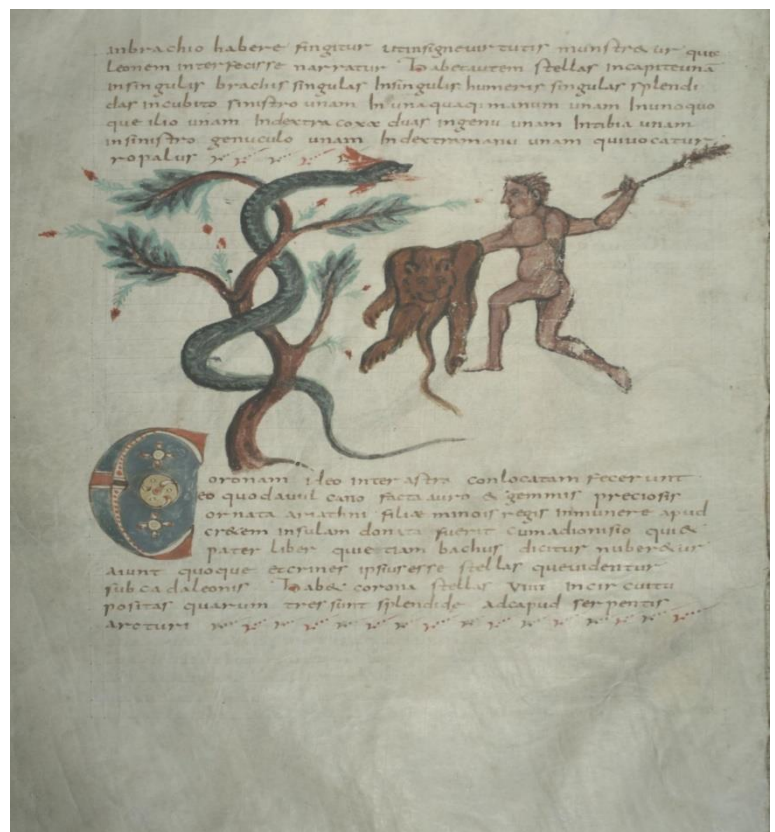 inbrachio habere fingitur utinsigneuirtutis munstr&ur quia
leonem interfecisse narratur Habetautem stellas incapiteunã
insingulis brachiis singulas Insingulis humeris singulas splendi
das incubito sinistro unam Inunaquaq; manum unam Inunoquo
que ilio unam Indextra coxa duas ingenu unam Intibia unam
insinistro genuculo unam Indextramanu unam quiuocatur
ropalus
Coronam ideo inter astra conlocatam fecerunt
eo quodauul cano facta auro & gemmis preciosis
ornata ariathni filiae minois regis inmunere apud
cr&em insulam donata fuerit cumadionisio qui&
pater liber quietiam bachus dicitur nuber&ur
aiunt quoque etcrines ipsiusesse stellas queuidentur
sub cadaleonis Hab& corona stellas VIIII incircuitu
positas quarum tres sunt splendide adcapud serpentis
arcturi